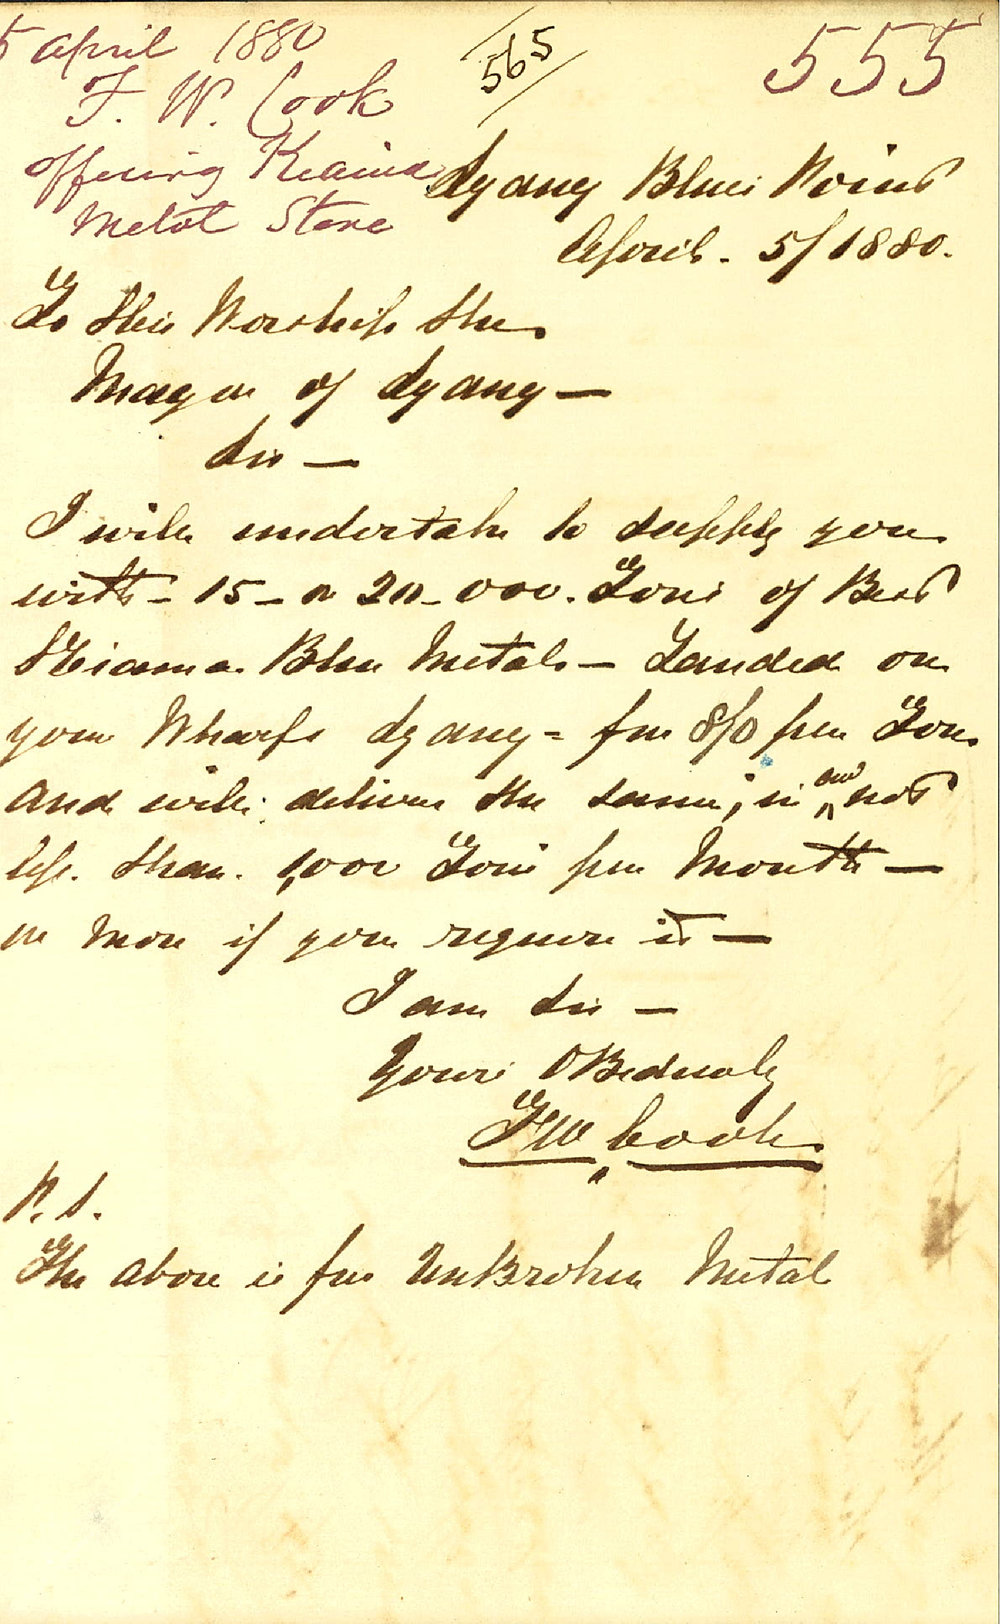 5 April 1880
F. W. Cook
offering Keaima
Metal Stone
565
555
Sydney Blues Point
April. 5/1880.
To His Worship the
Mayor of Sydney —
Sir —
I will undertake to supply you
with - 15 - or 20 - 000. Tons of Best
Kiama Blue Metal — Landed on
your Wharfs Sydney = for 8/0 per Ton
and will deliver the same, in and not
less. than. 1,000 Tons per Month —
or More if you require it —
I am Sir —
Yours OBediently
FW Cook
P. S.
The above is for UnBroken Metal